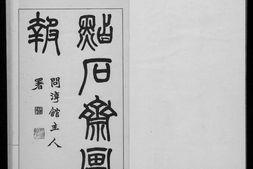 點石齋畫
報
問潮館主人
署